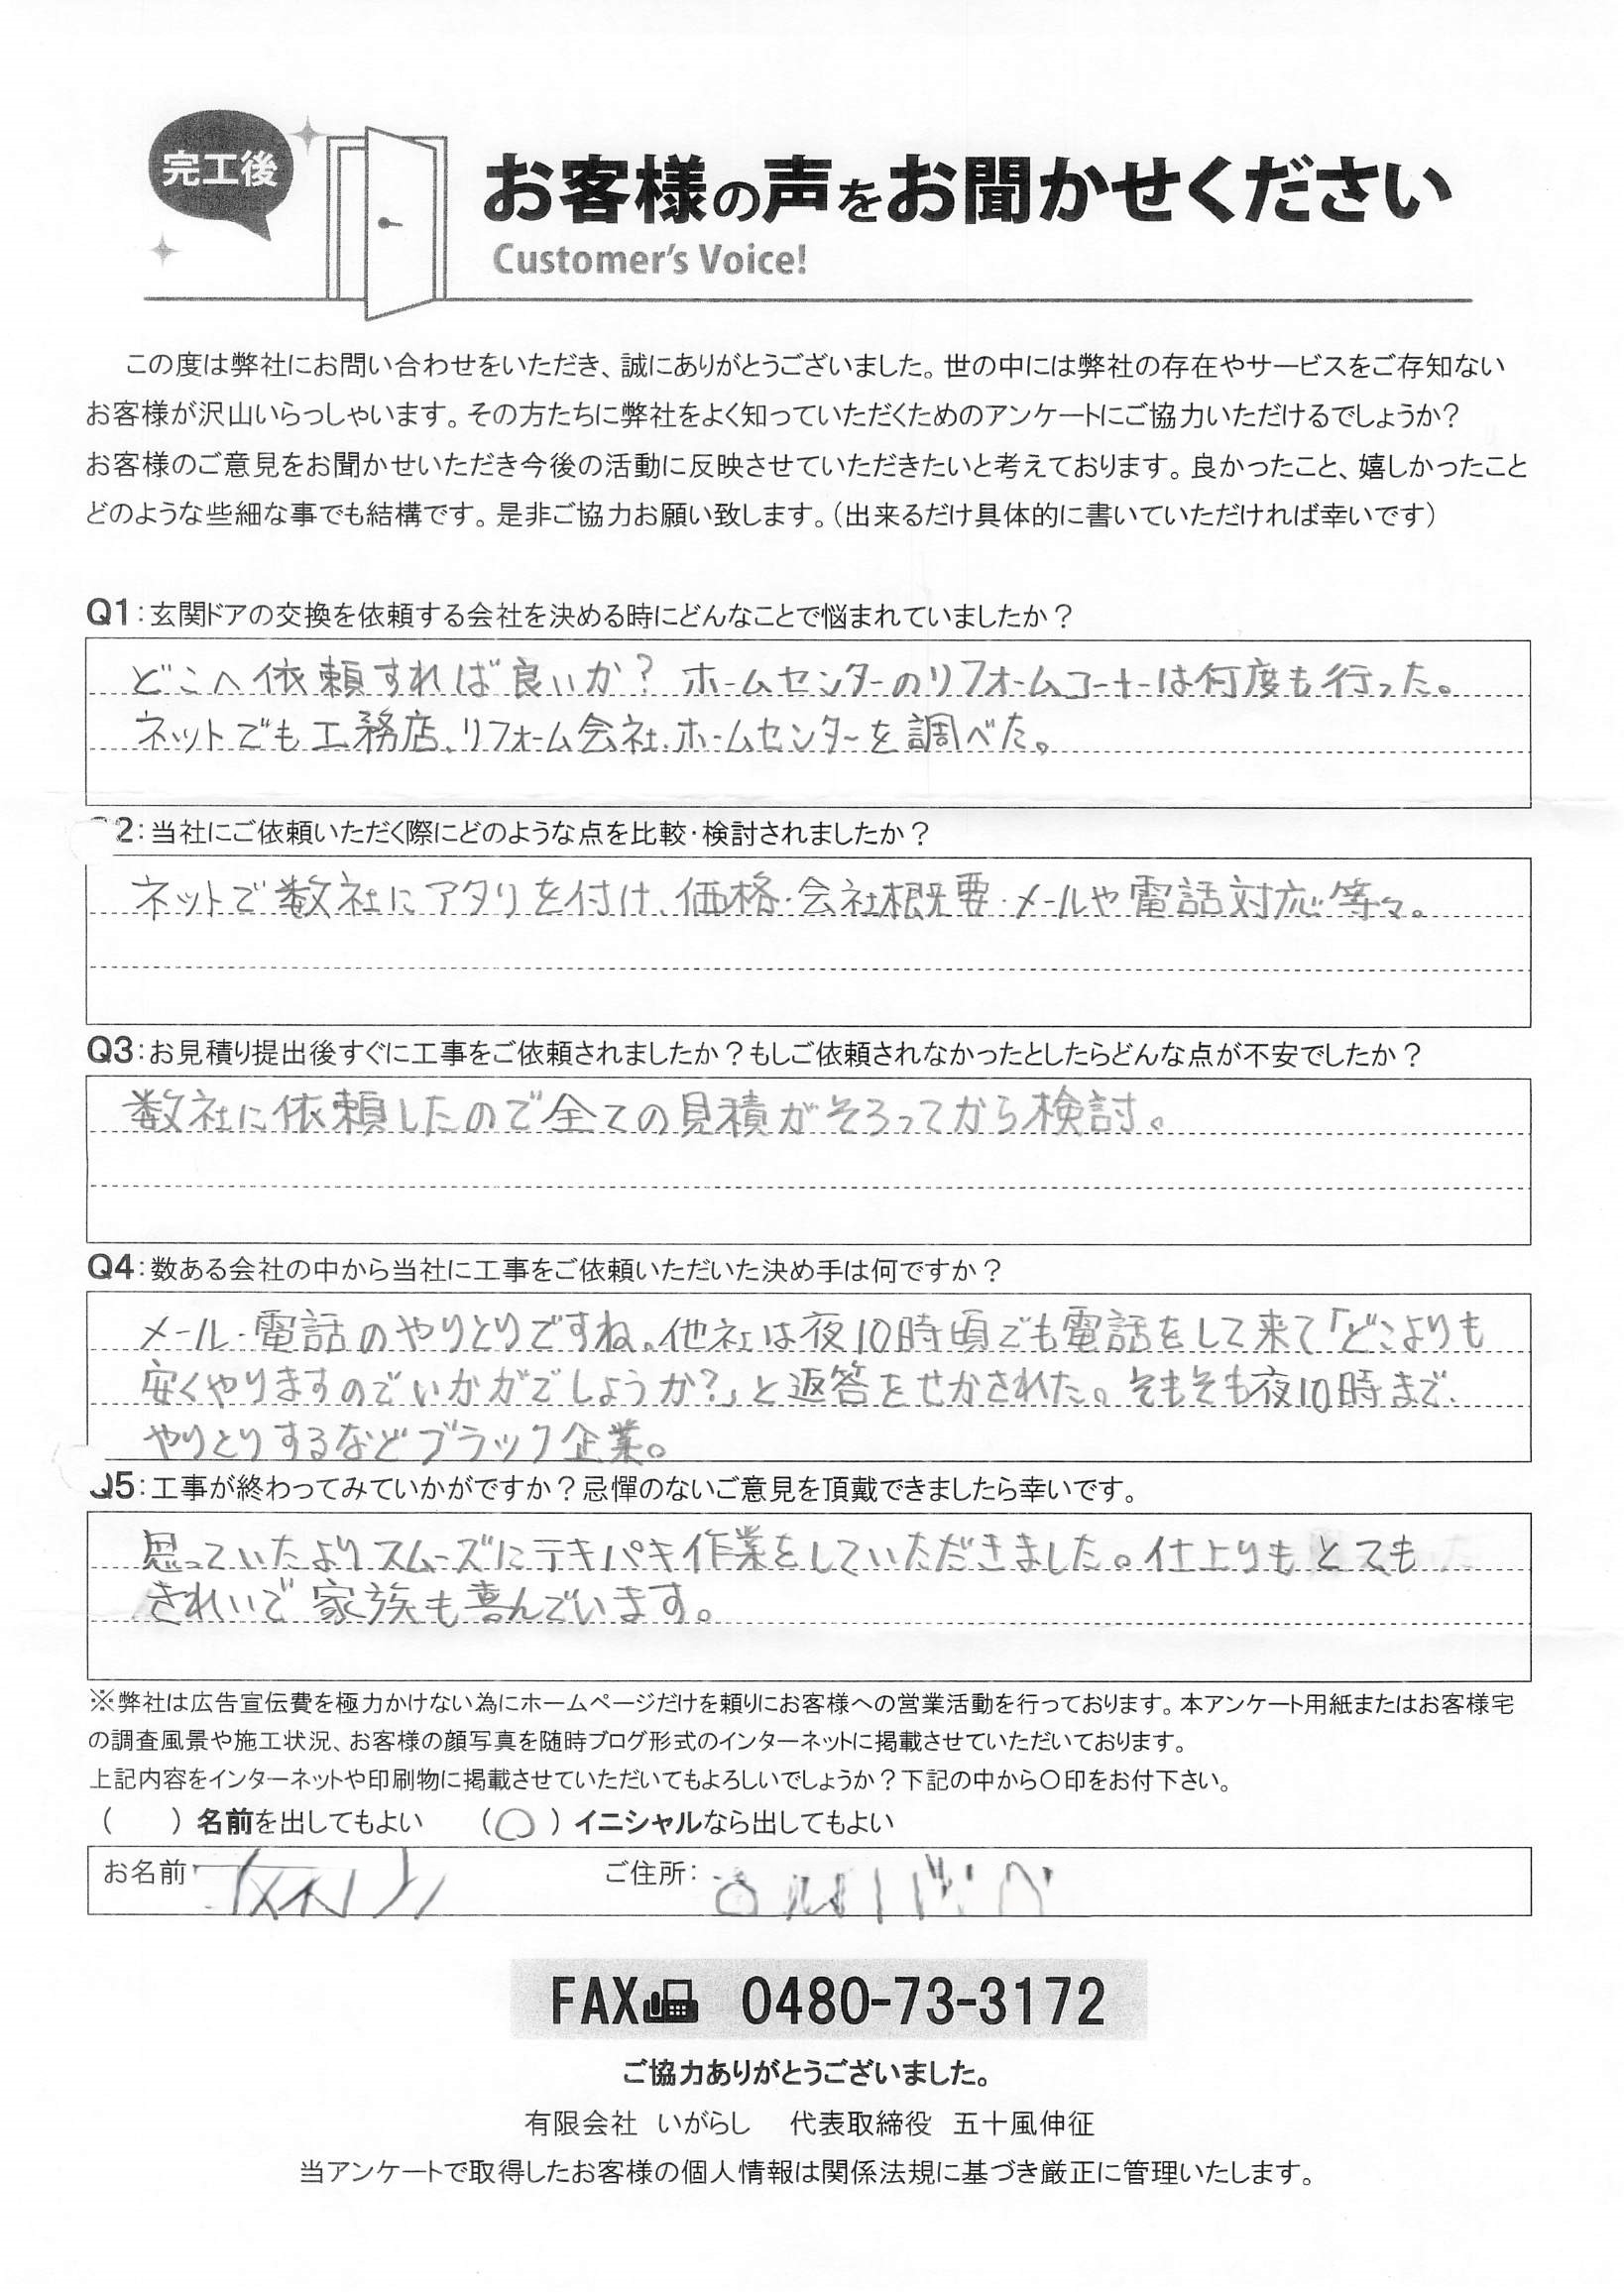 完工後
お客様の声をお聞かせください
Customer's Voice!
この度は弊社にお問い合わせをいただき、誠にありがとうございました。世の中には弊社の存在やサービスをご存知ない
お客様が沢山いらっしゃいます。その方たちに弊社をよく知っていただくためのアンケートにご協力いただけるでしょうか?
お客様のご意見をお聞かせいただき今後の活動に反映させていただきたいと考えております。良かったこと、嬉しかったこと
どのような些細な事でも結構です。是非ご協力お願い致します。(出来るだけ具体的に書いていただければ幸いです)
Q1:玄関ドアの交換を依頼する会社を決める時にどんなことで悩まれていましたか?
どこへ依頼すれば良いか? ホームセンターのリフォームコーナーは何度も行った。
ネットでも工務店、リフォーム会社、ホームセンターを調べた。
2:当社にご依頼いただく際にどのような点を比較・検討されましたか?
ネットで数社にアタリを付け、価格・会社概要・メールや電話対応等々。
Q3:お見積り提出後すぐに工事をご依頼されましたか?もしご依頼されなかったとしたらどんな点が不安でしたか?
数社に依頼したので全ての見積がそろってから検討。
Q4:数ある会社の中から当社に工事をご依頼いただいた決め手は何ですか?
メール・電話のやりとりですね。他社は夜10時頃でも電話をして来て「どこよりも
安くやりますのでいかがでしょうか?」と返答をせかされた。そもそも夜10時まで、
やりとりするなどブラック企業。
Q5:工事が終わってみていかがですか?忌憚のないご意見を頂戴できましたら幸いです。
思っていたよりスムーズにテキパキ作業をしていただきました。仕上りもとても
きれいで家族も喜んでいます。
※弊社は広告宣伝費を極力かけない為にホームページだけを頼りにお客様への営業活動を行っております。本アンケート用紙またはお客様宅
の調査風景や施工状況、お客様の顔写真を随時ブログ形式のインターネットに掲載させていただいております。
上記内容をインターネットや印刷物に掲載させていただいてもよろしいでしょうか?下記の中から〇印をお付下さい。
( )名前を出してもよい (〇)イニシャルなら出してもよい
お名前 ご住所:
FAX 0480-73-3172
ご協力ありがとうございました。
有限会社 いがらし 代表取締役 五十嵐伸征
当アンケートで取得したお客様の個人情報は関係法規に基づき厳正に管理いたします。